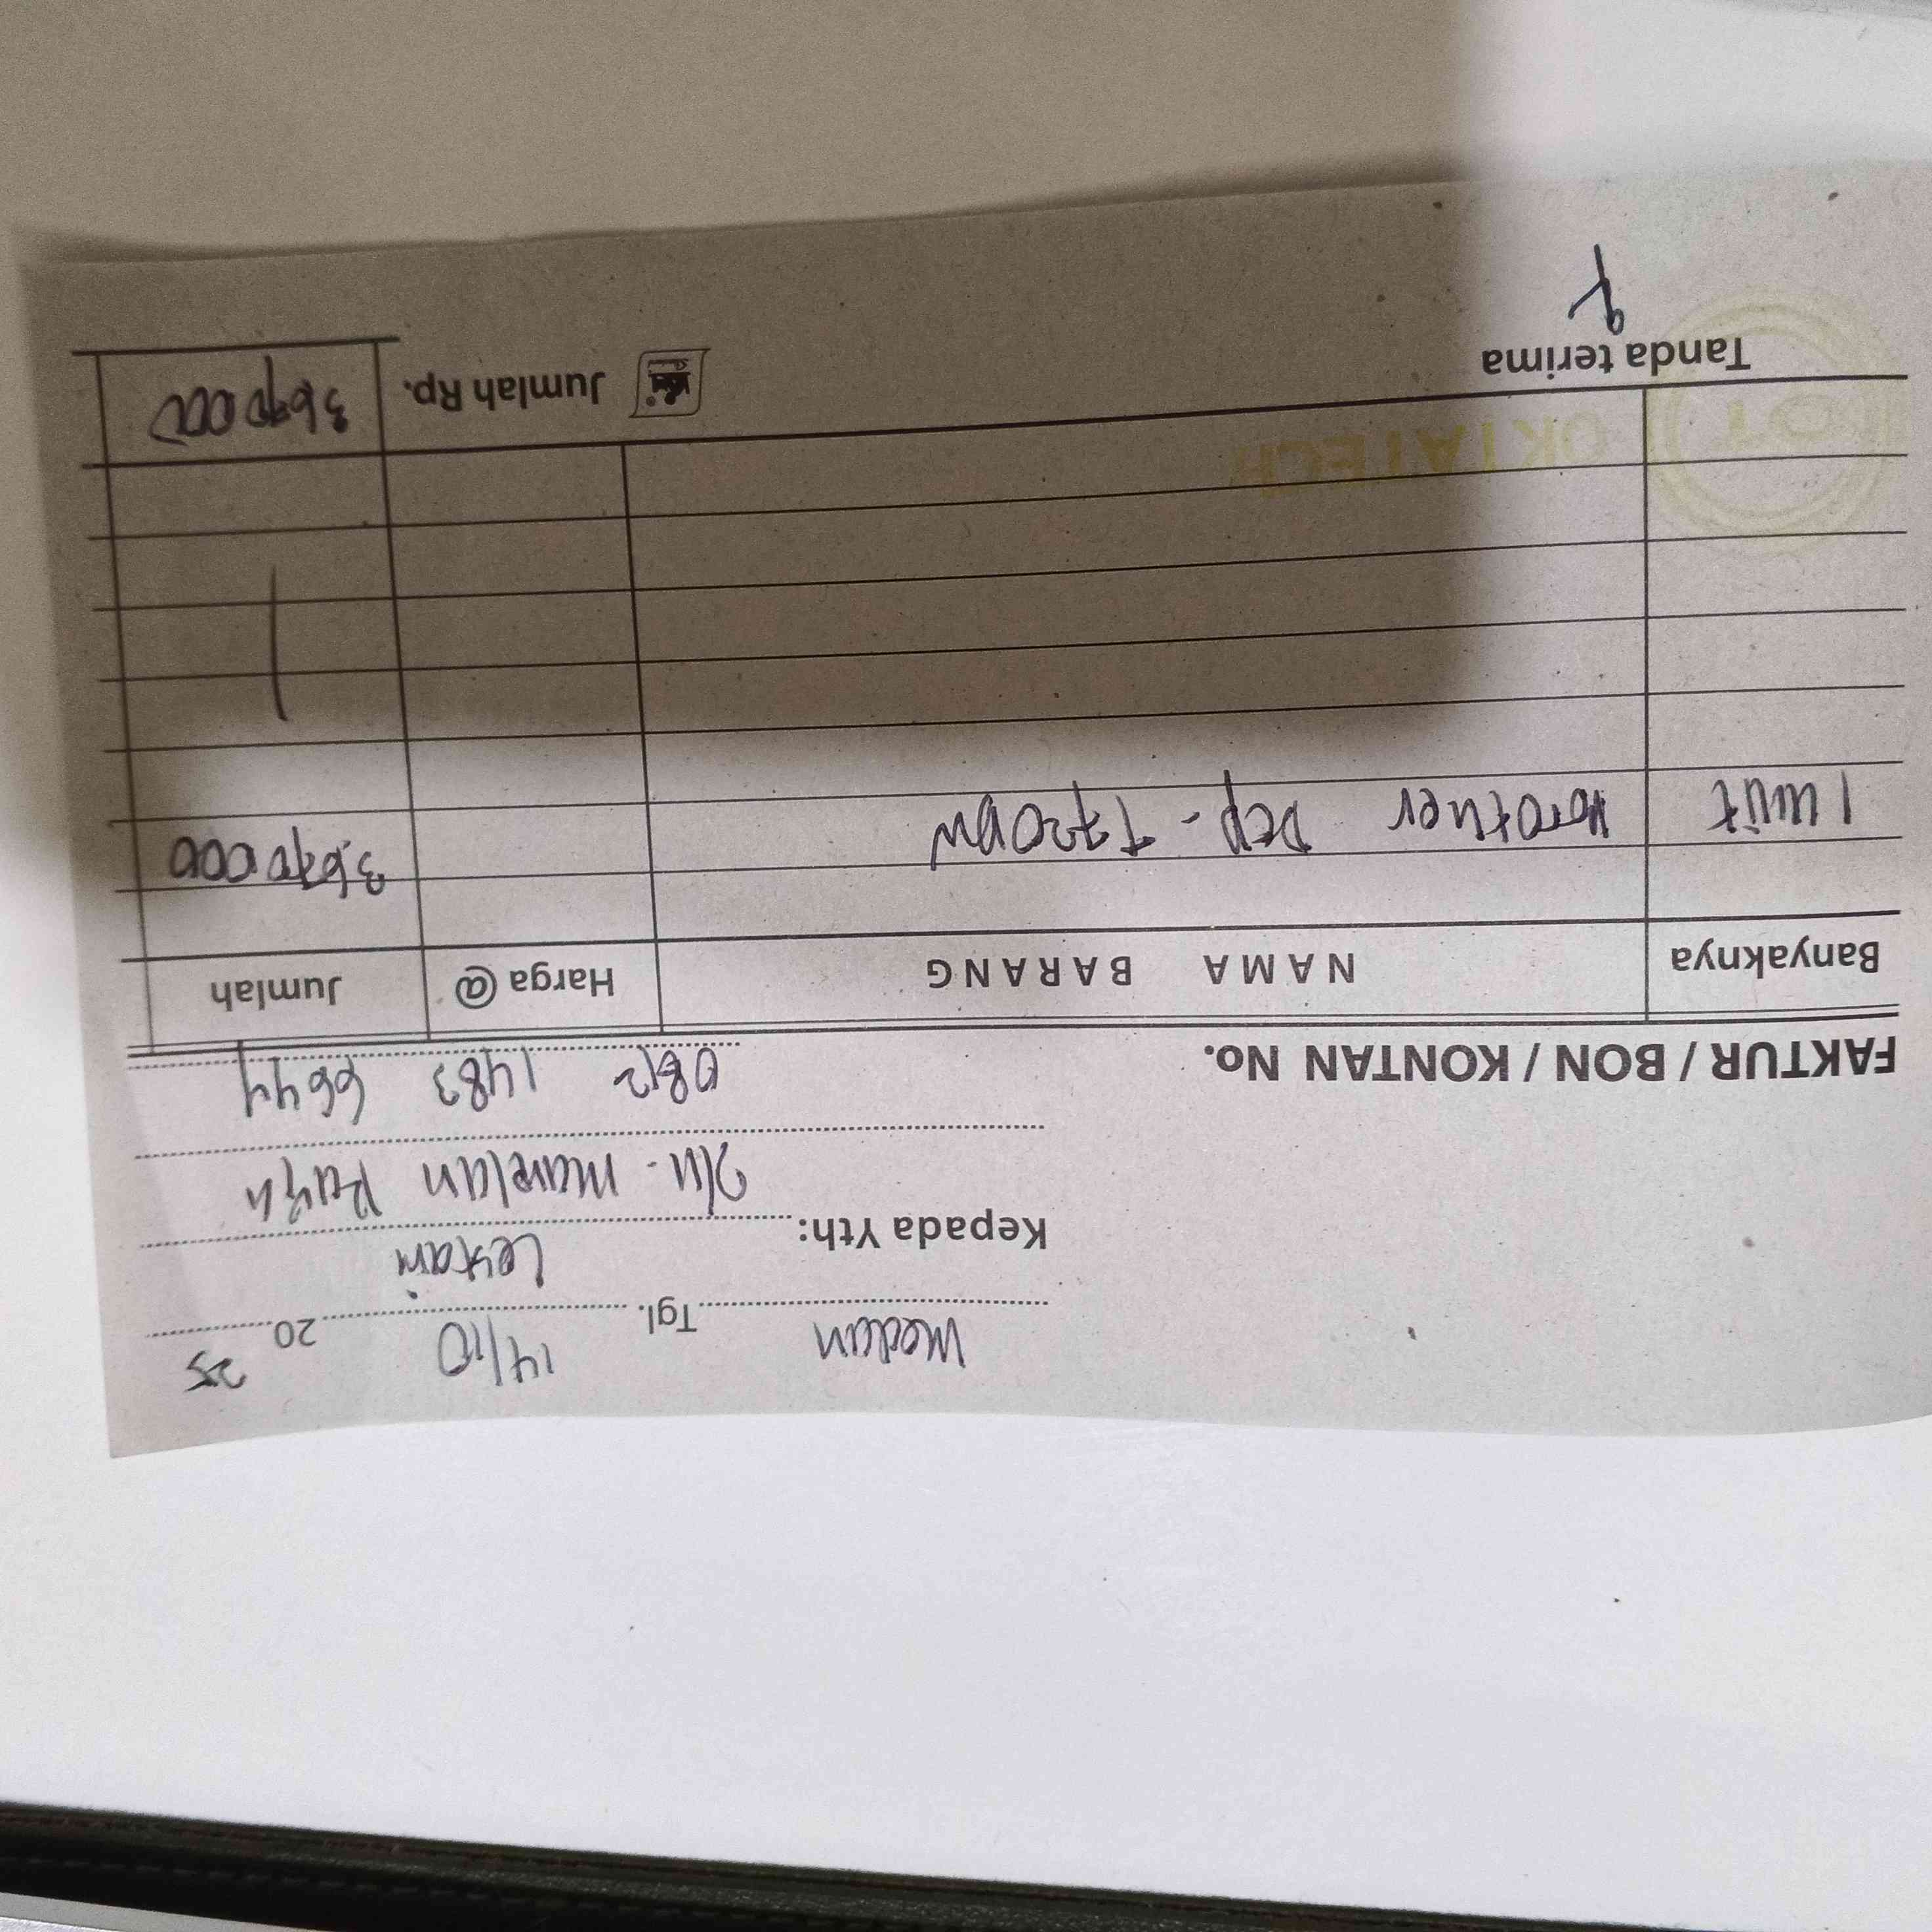 Medan Tgl. 14/10 20 25
Lestari
Kepada Yth:
Jln. Marelan Psr
0812 1483 6644
FAKTUR / BON / KONTAN No.
Banyaknya NAMA BARANG Harga @ Jumlah
1 unit Brother Dcp - T720DW 3.690.000
Jumlah Rp. 3.690.000
OT OKTATECH
Tanda terima